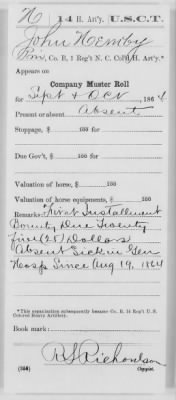 N 14 H. Art'y. U.S.C.T.
John Hemby
Pvt, Co. B, 1 Reg't N. C. Col'd H. Art'y.*
Appears on
Company Muster Roll
for Sept & Oct, 1864
Present or absent Absent
Stoppage, $ 100 for
Due Gov't, $ 100 for
Valuation of horse, $ 100
Valuation of horse equipments, $ 100
Remarks: First Installment
Bounty Due Twenty
five (25) Dollars
Absent Sick in Gen
Hosp Since Aug 19, 1864
*This organization subsequently became Co. B, 14 Reg't U. S.
Colored Heavy Artillery.
Book mark:
R S Richardson
(358) Copyist.